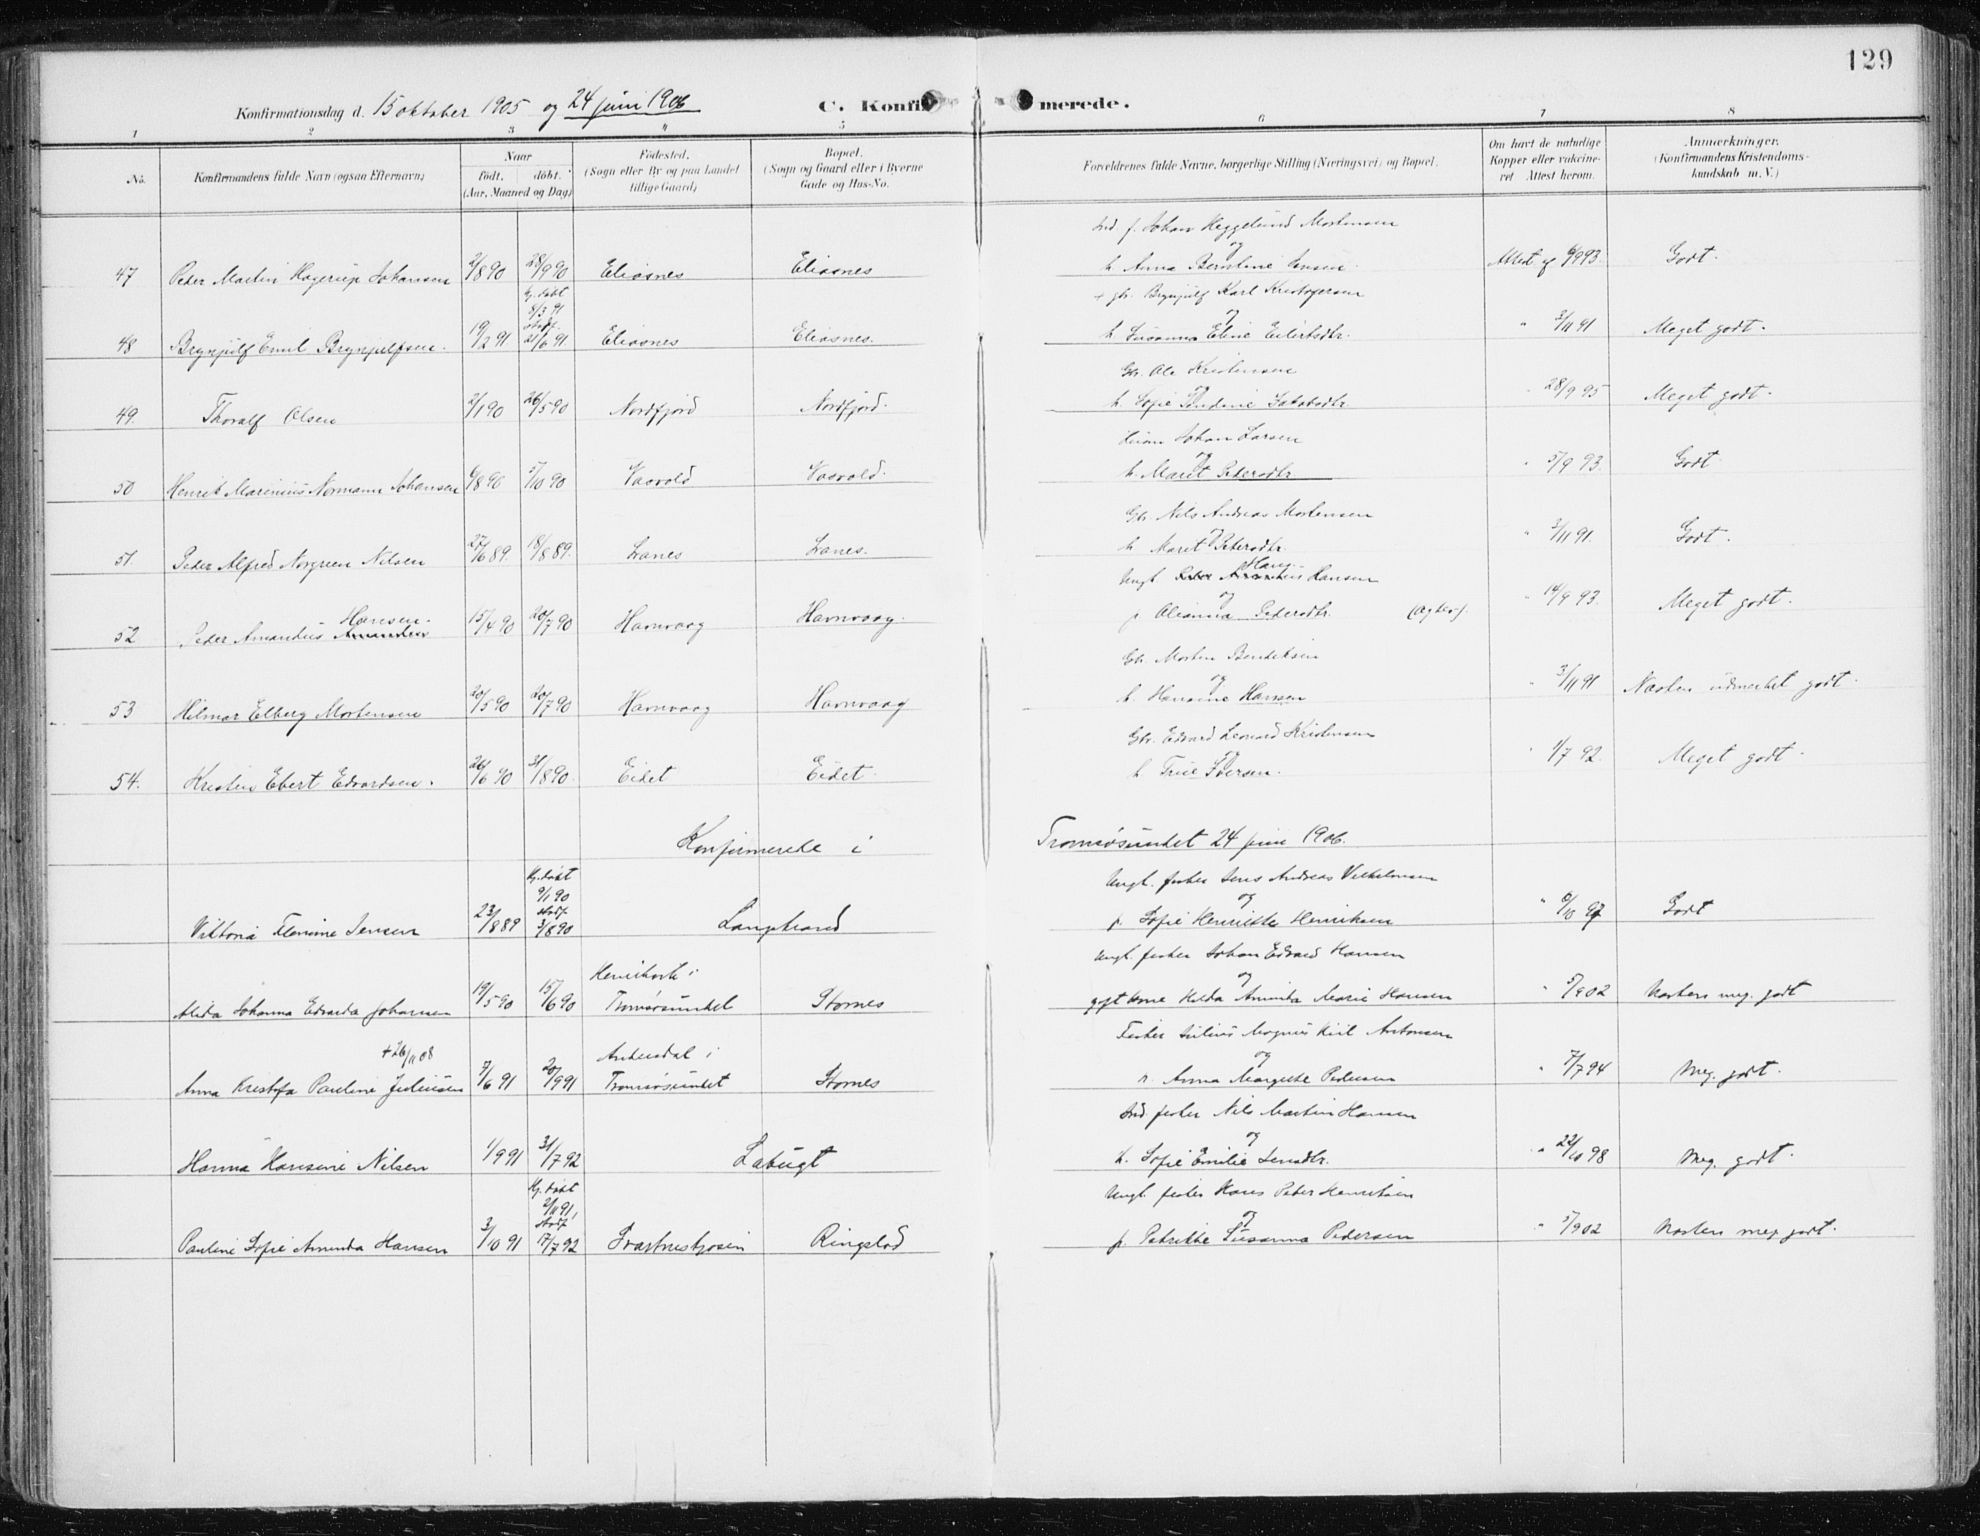 129
Konfirmationsdag d. 15 oktober 1905 og 24 juni 1906
C. Konfirmerede.
1 2 3 4 5 6 7 8
No. Konfirmandens fulde Navn (ogsaa Efternavn) Naar født. døbt. (Aar, Maaned og Dag) Fødested. (Sogn eller By og paa Landet tillige Gaard) Bopæl. (Sogn og Gaard eller i Byerne Gade og Hus-No. Forældrenes fulde Navne, borgerlige Stilling (Næringsvei) og Bopæl. Om havt de naturlige Kopper eller vaccineret Attest herom. Anmærkninger. (Konfirmandens Kristendomskundskab m. V.)
Johan Heggelund Mortensen
og
47 Peder Martin Hagerup Johansen 2/8 90 28/9 90 Eliasnes Eliasnes h. Anna Berntine Jensen. Attest af 6/9 93. Godt.
Hj. døbt 8/3 91 + gbr. Brynjulf Karl Kristofersen
stadf. og
48 Brynjulf Emil Brynjulfsen. 19/2 91 21/6 91 Eliasnes Eliasnes. h. Susanna Eline Eilertsdtr. " 3/11 91 Meget godt.
Gbr. Ole Kristensen
og
49. Thoralf Olsen 2/1 90 26/5 90 Nordfjord Nordfjord. h. Sofie Jakobsdtr. " 28/9 95 Meget godt.
Johan Larsen
og
50 Henrik Marinius Normann Johansen 6/8 90 5/10 90 Vasvold Vasvold. h. Marit Pedersdtr " 5/9 93. Godt.
Gbr. Nils Andreas Mortensen
og
51. Peder Alfred Norgreen Nilsen 27/6 89. 18/8 89. Lanes Lanes. h. Marit Pedersdtr. " 3/11 91. Godt.
Hans
Ungk. Hansen
Hansen. og
52 Peder Amandus 15/4 90 20/7 90 Havnvaag Havnvaag. p. Olianna Pedersdtr. " 14/9 93. Meget godt.
Gbr. Morten Bendiksen
og
53 Hilmar Elberg Mortensen 20/5 90 20/7 90 Havnvaag Havnvaag h. Hansine Hansen " 3/11 91 Næsten udmerket godt.
Gbr. Edvard Leonard Kristensen
og
54. Kristen Ebert Edvardsen. 26/6 90 31/8 90. Eidet Eidet. h. Trine Iversen. " 1/7 92. Meget godt.
Konfirmerede i Tromsøsundet 24 juni 1906.
Hj. døbt 9/1 90 Ungk. fisker Jens Andreas Vilhelmsen
stadf. og
Viktoria Jensen 23/8 89 3/8 90 Langstrand p. Sofie Henrikke Henriksen " 6/10 97 Godt
Ungk. fisker Johan Edvard Hansen
i og
Alida Johanna Edvarda Johansen 19/5 90 15/6 90 Tromsøsundet Stornes gift kone Hilda Aminda Marie Hansen " 5/9 02 Næsten meg. godt
Fisker Julius Magnus Antonsen
+ 26/11 08 Andersdal i og
Anna Kristofa Pauline Juliussen 7/6 91 20/9 91 Tromsøsundet Stornes h. Anna Margrethe Pedersen " 7/7 94 Meg. godt.
Ind. fisker Nils Martin Hansen
og
Hanna Hansine Nilsen 1/9 91 31/7 92 Labugt h. Sofie Emilie Jensdtr. " 22/10 98 Meg. godt.
Hj. døbt 2/11 91, Ungk. fisker Hans Peter Henriksen
stadf. og
Pauline Sofie Aminda Hansen 3/10 91 17/7 92 Ringslod p. Petrikke Susanna Pedersen " 5/9 02 Næsten meg. godt.